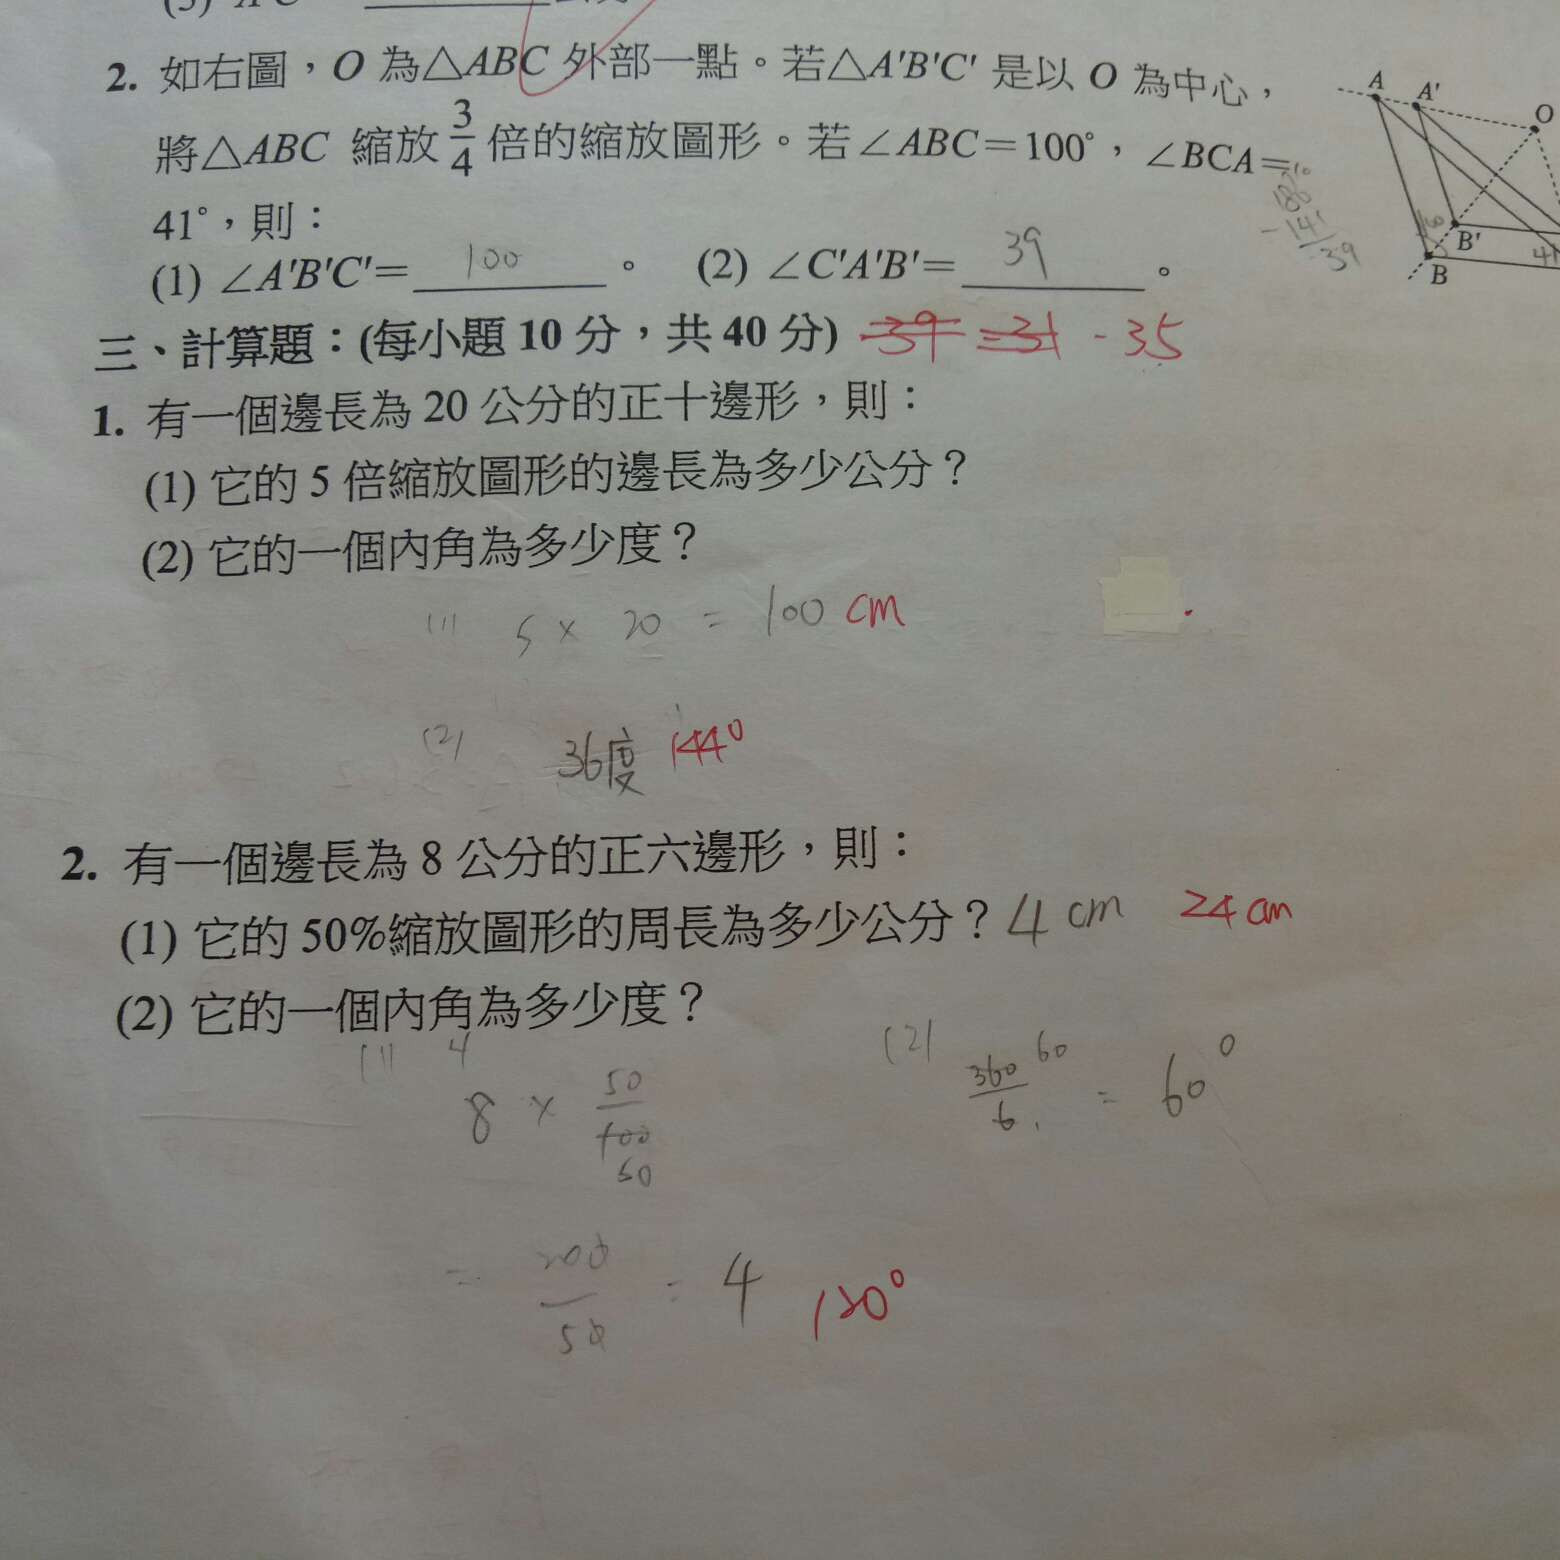 2. 如右圖，O 為△ABC 外部一點。若△A'B'C' 是以 O 為中心，
將△ABC 縮放 3/4 倍的縮放圖形。若∠ABC＝100°，∠BCA＝
41°，則：
(1) ∠A'B'C'＝ 100 。 (2) ∠C'A'B'＝ 39 。
A A' O
B' B
三、計算題：(每小題 10 分，共 40 分) 39 -31 -35
1. 有一個邊長為 20 公分的正十邊形，則：
(1) 它的 5 倍縮放圖形的邊長為多少公分？
(2) 它的一個內角為多少度？
(1) 5 × 20 = 100 cm
(2) 36度 144°
2. 有一個邊長為 8 公分的正六邊形，則：
(1) 它的 50%縮放圖形的周長為多少公分？4 cm 24 cm
(2) 它的一個內角為多少度？
(1) 4 8 × 50/100 50
(2) 360/6 60 = 60°
= 200/50 = 4 120°